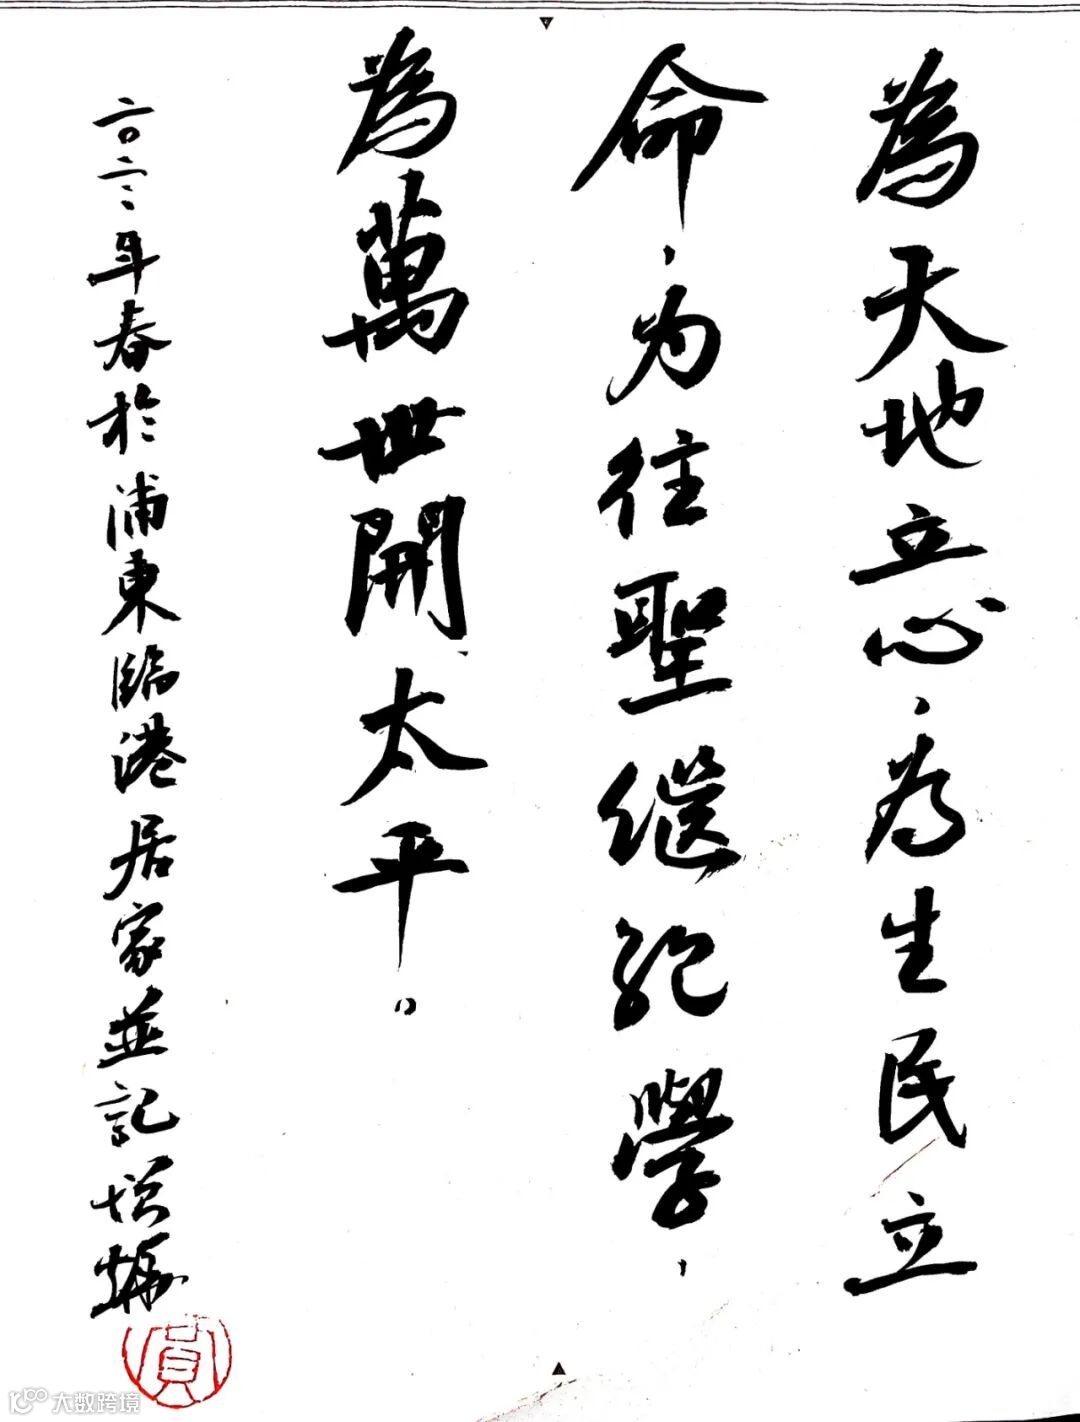 為天地立心，為生民立
命，为往聖继绝學，
為萬世開太平。
二〇二二年春於浦東臨港居家並記增
大数跨境